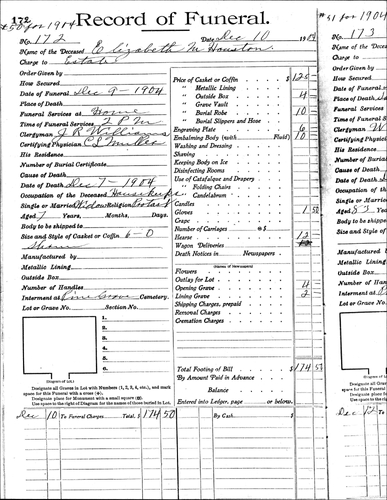 172
#50 for 1904
Record of Funeral.
No. 172 Date Dec 10 1904
Name of the Deceased Elizabeth M Houston
Charge to Estate
Order Given by
How Secured
Date of Funeral Dec 9 - 1904
Place of Death
Funeral Services at Home
Time of Funeral Services 2 P M
Clergyman J R Williams
Certifying Physician C S
His Residence
Number of Burial Certificate
Cause of Death
Date of Death Dec 7 - 1904
Occupation of the Deceased Housekeeper
Single or Married Widow Religion Protest
Aged 7 Years, Months, Days.
Body to be shipped to
Size and Style of Casket or Coffin 6-0
Manufactured by
Metallic Lining
Outside Box
Number of Handles
Interment at Pine Grove Cemetery.
Lot or Grave No. Section No.
1.
2.
3.
4.
5.
6.
(Diagram of Lot.)
Designate all Graves in Lot with Numbers (1, 2, 3, 4, etc.), and mark
space for this Funeral with a cross (+).
Designate place for Monument with a small square (□).
Use the space to the right of Diagram for the names of those buried in Lot.
Price of Casket or Coffin $ 125 -
" Metallic Lining
" Outside Box 4 -
" Grave Vault
" Burial Robe 10
" Burial Slippers and Hose
Engraving Plate 6
Embalming Body (with Fluid) 10
Washing and Dressing
Shaving
Keeping Body on Ice
Disinfecting Rooms
Use of Catafalque and Drapery
" Folding Chairs
" Candelabrum
Candles
Gloves 1 50
Crape
Number of Carriages @ $
Hearse 12 -
Wagon Deliveries
Death Notices in Newspapers
(Names of Newspapers)
Flowers
Outlay for Lot
Opening Grave 4
Lining Grave 2
Shipping Charges, prepaid
Removal Charges
Cremation Charges
Total Footing of Bill $ 174 50
By Amount Paid in Advance
Balance
Entered into Ledger, page or below.
Dec 10 To Funeral Charges Total, $ 174 50 By Cash $
#51 for 1904
No. 173
Name of the
Charge to
Order Given
How Secured
Date of Funeral
Place of Death
Funeral Services
Time of Funeral
Clergyman
Certifying Ph
His Residence
Number of Bu
Cause of Death
Date of Death
Occupation of
Single or Marr
Aged 83
Body to be ship
Size and Style
Manufactured
Metallic Lining
Outside Box
Number of Ha
Interment at
Lot or Grave N
Dec 12